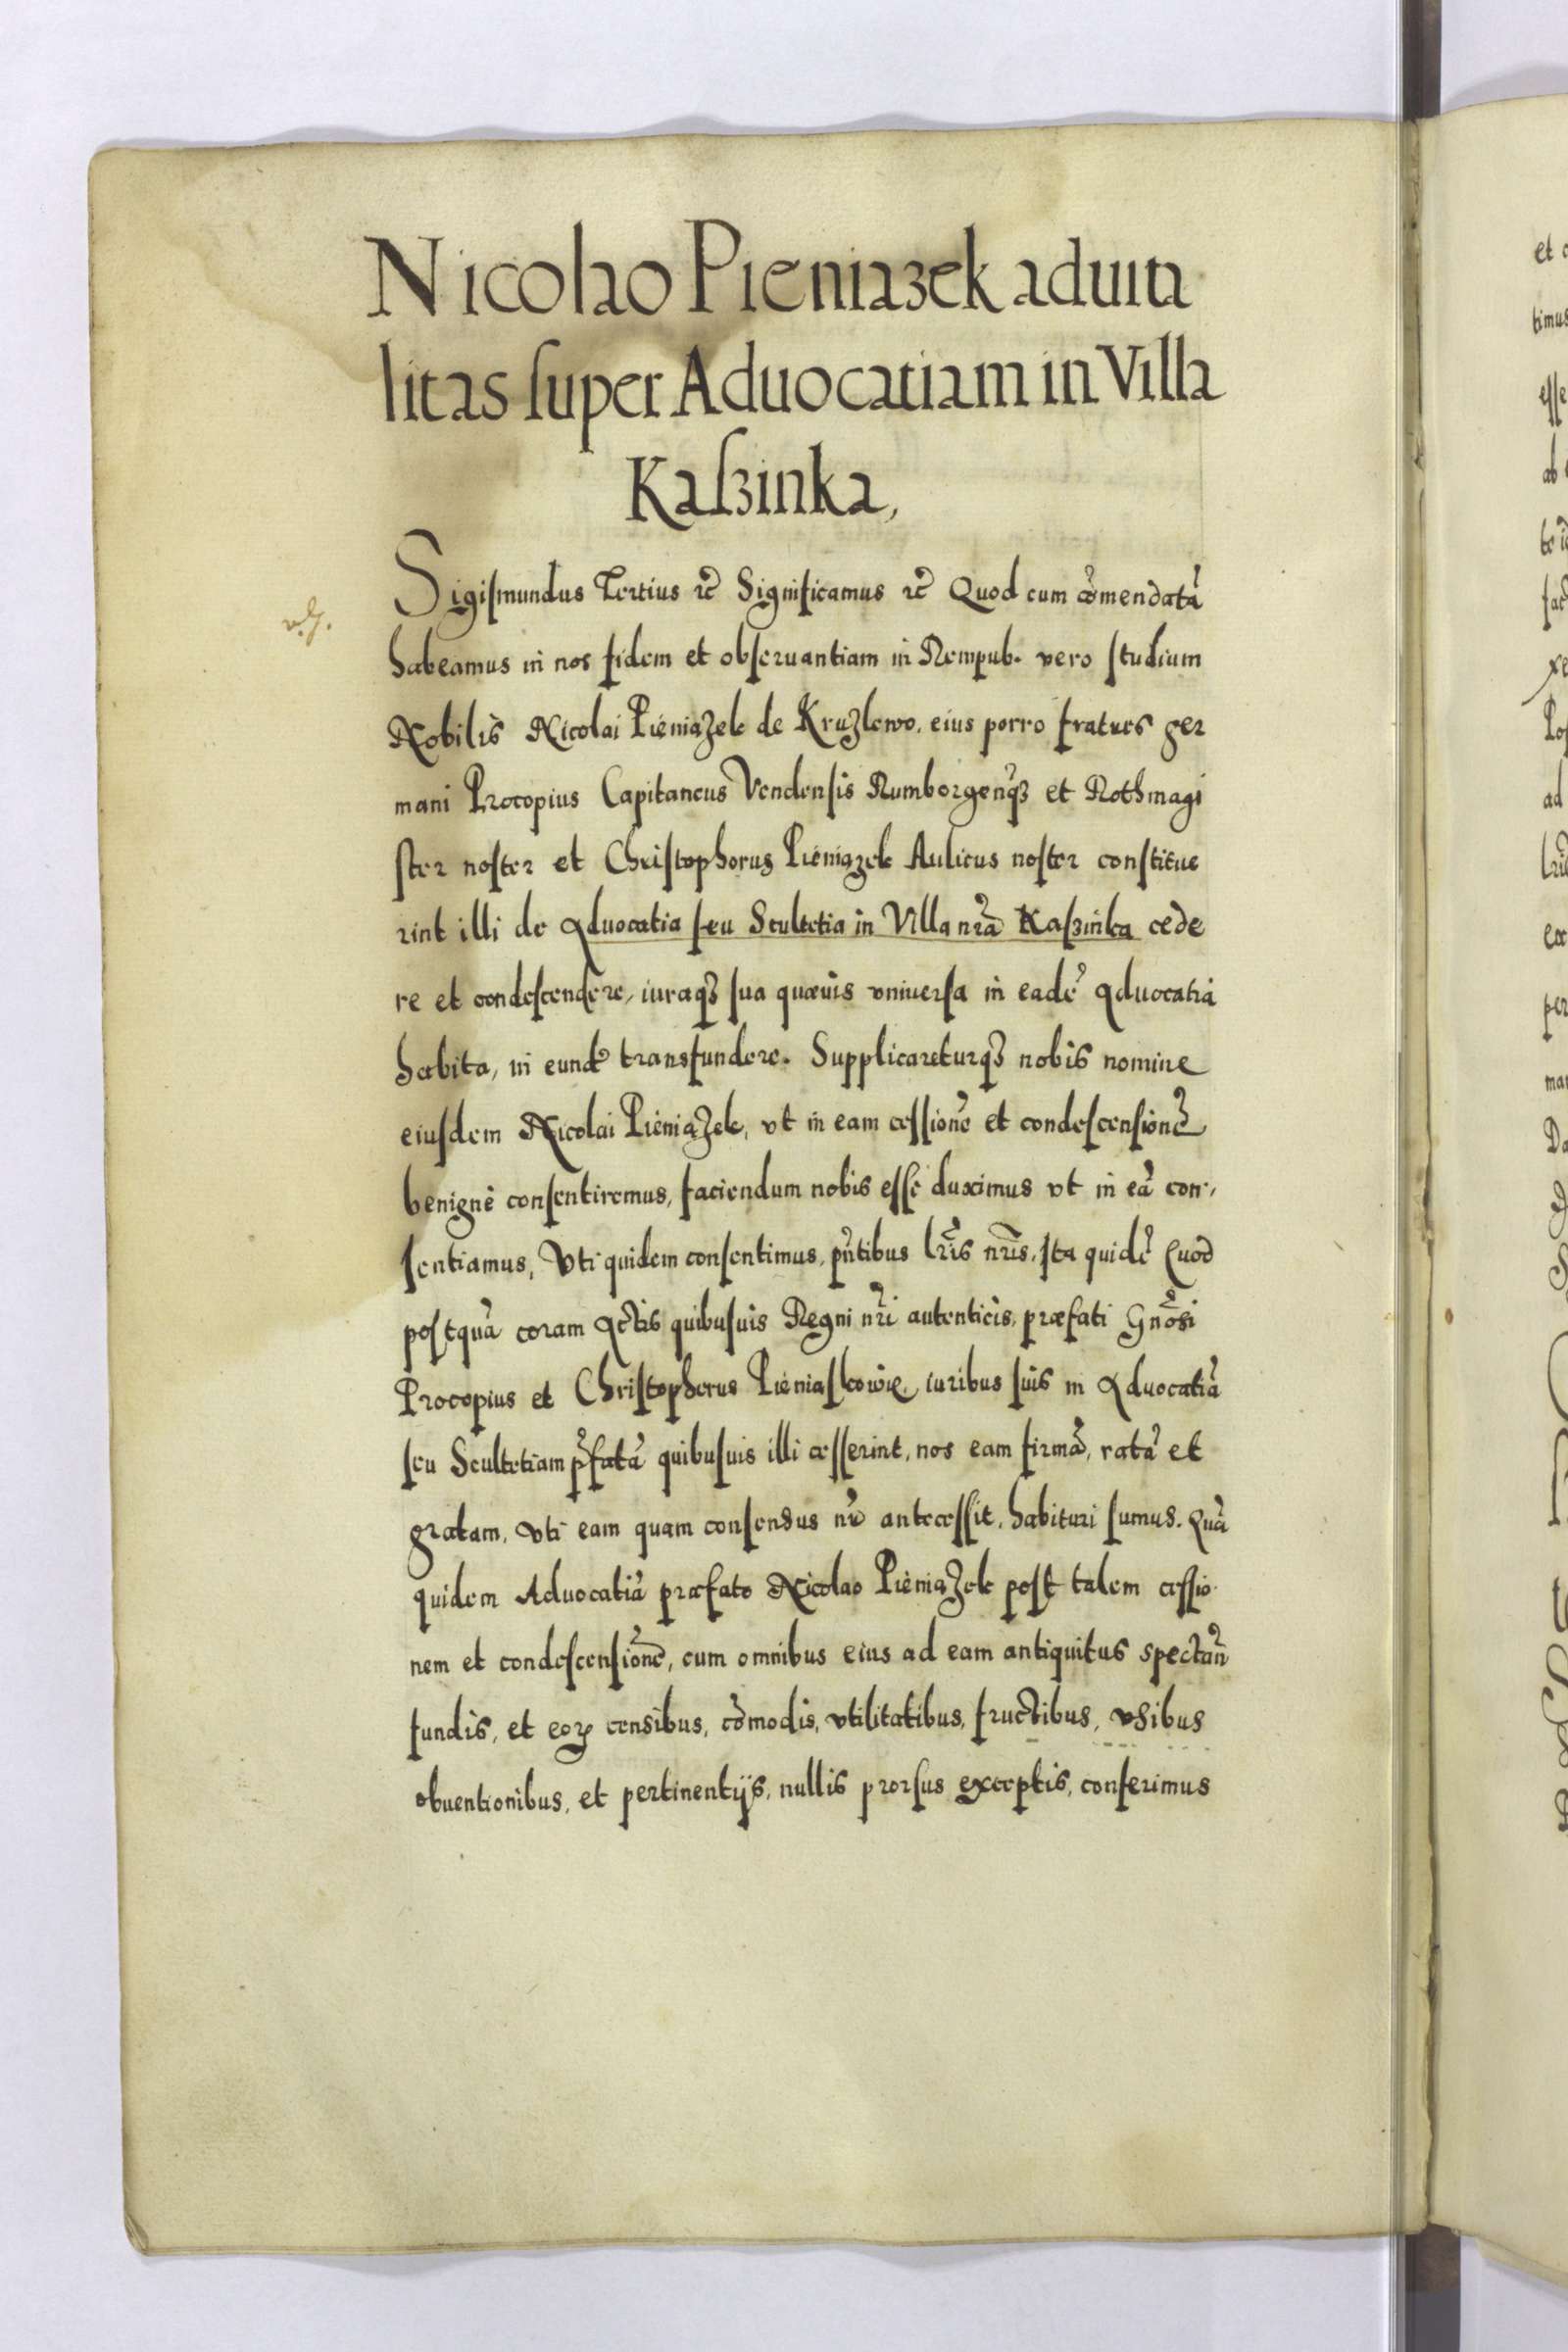 Nicolao Pieniazek aduita
litas super Aduocatiam in Villa
Kaſzinka,
Sigiſmundus Tertius ꝛc̃ Significamus ꝛc̃ Quod cum cõmendatã
habeamus in nos fidem et obſeruantiam in Rempub. vero ſtudium
Nobilis Nicolai Pieniązek de Kruzlowo, eius porro fratres ger
mani Procopius Capitaneus Vendenſis Rumborgenqꝫ et Rothmagi
ſter noſter et Chriſtophorus Pieniązek Aulicus noſter conſtitue
rint illi de Aduocatia ſeu Scultetia in Villa nrã Kaſzinka cede
re et condeſcendere, iuraqꝫ ſua quæuis vniuerſa in eadẽ Aduocatia
habita, in eundẽ transfundere. Supplicareturqꝫ nobis nomine
eiuſdem Nicolai Pieniązek, vt in eam ceſſionẽ et condeſcenſionẽ
benignè conſentiremus, faciendum nobis eſſe duximus vt in eã con,
ſentiamus, Vti quidem conſentimus, pñtibus lr̃is nr̃is, Ita quidẽ Quod
poſtquã coram Actis quibuſuis Regni nr̃i autenticis, præfati Gnõsi
Procopius et Chriſtophorus Pieniaſkowie, iuribus ſuis in Aduocatiã
ſeu Scultetiam p̃fatã quibuſuis illi ceſſerint, nos eam firmã, ratã et
gratam, vti eam quam conſensus nr̃ anteceſſit, habituri ſumus. Quã
quidem Aduocatiã præfato Nicolao Pieniązek poſt talem ceſſio
nem et condeſcenſionẽ, cum omnibus eius ad eam antiquitus spectañ
fundis, et eoꝝ censibus, cõmodis, vtilitatibus, fructibus, vsibus
obuentionibus, et pertinentijs, nullis prorſus exceptis, conferimus